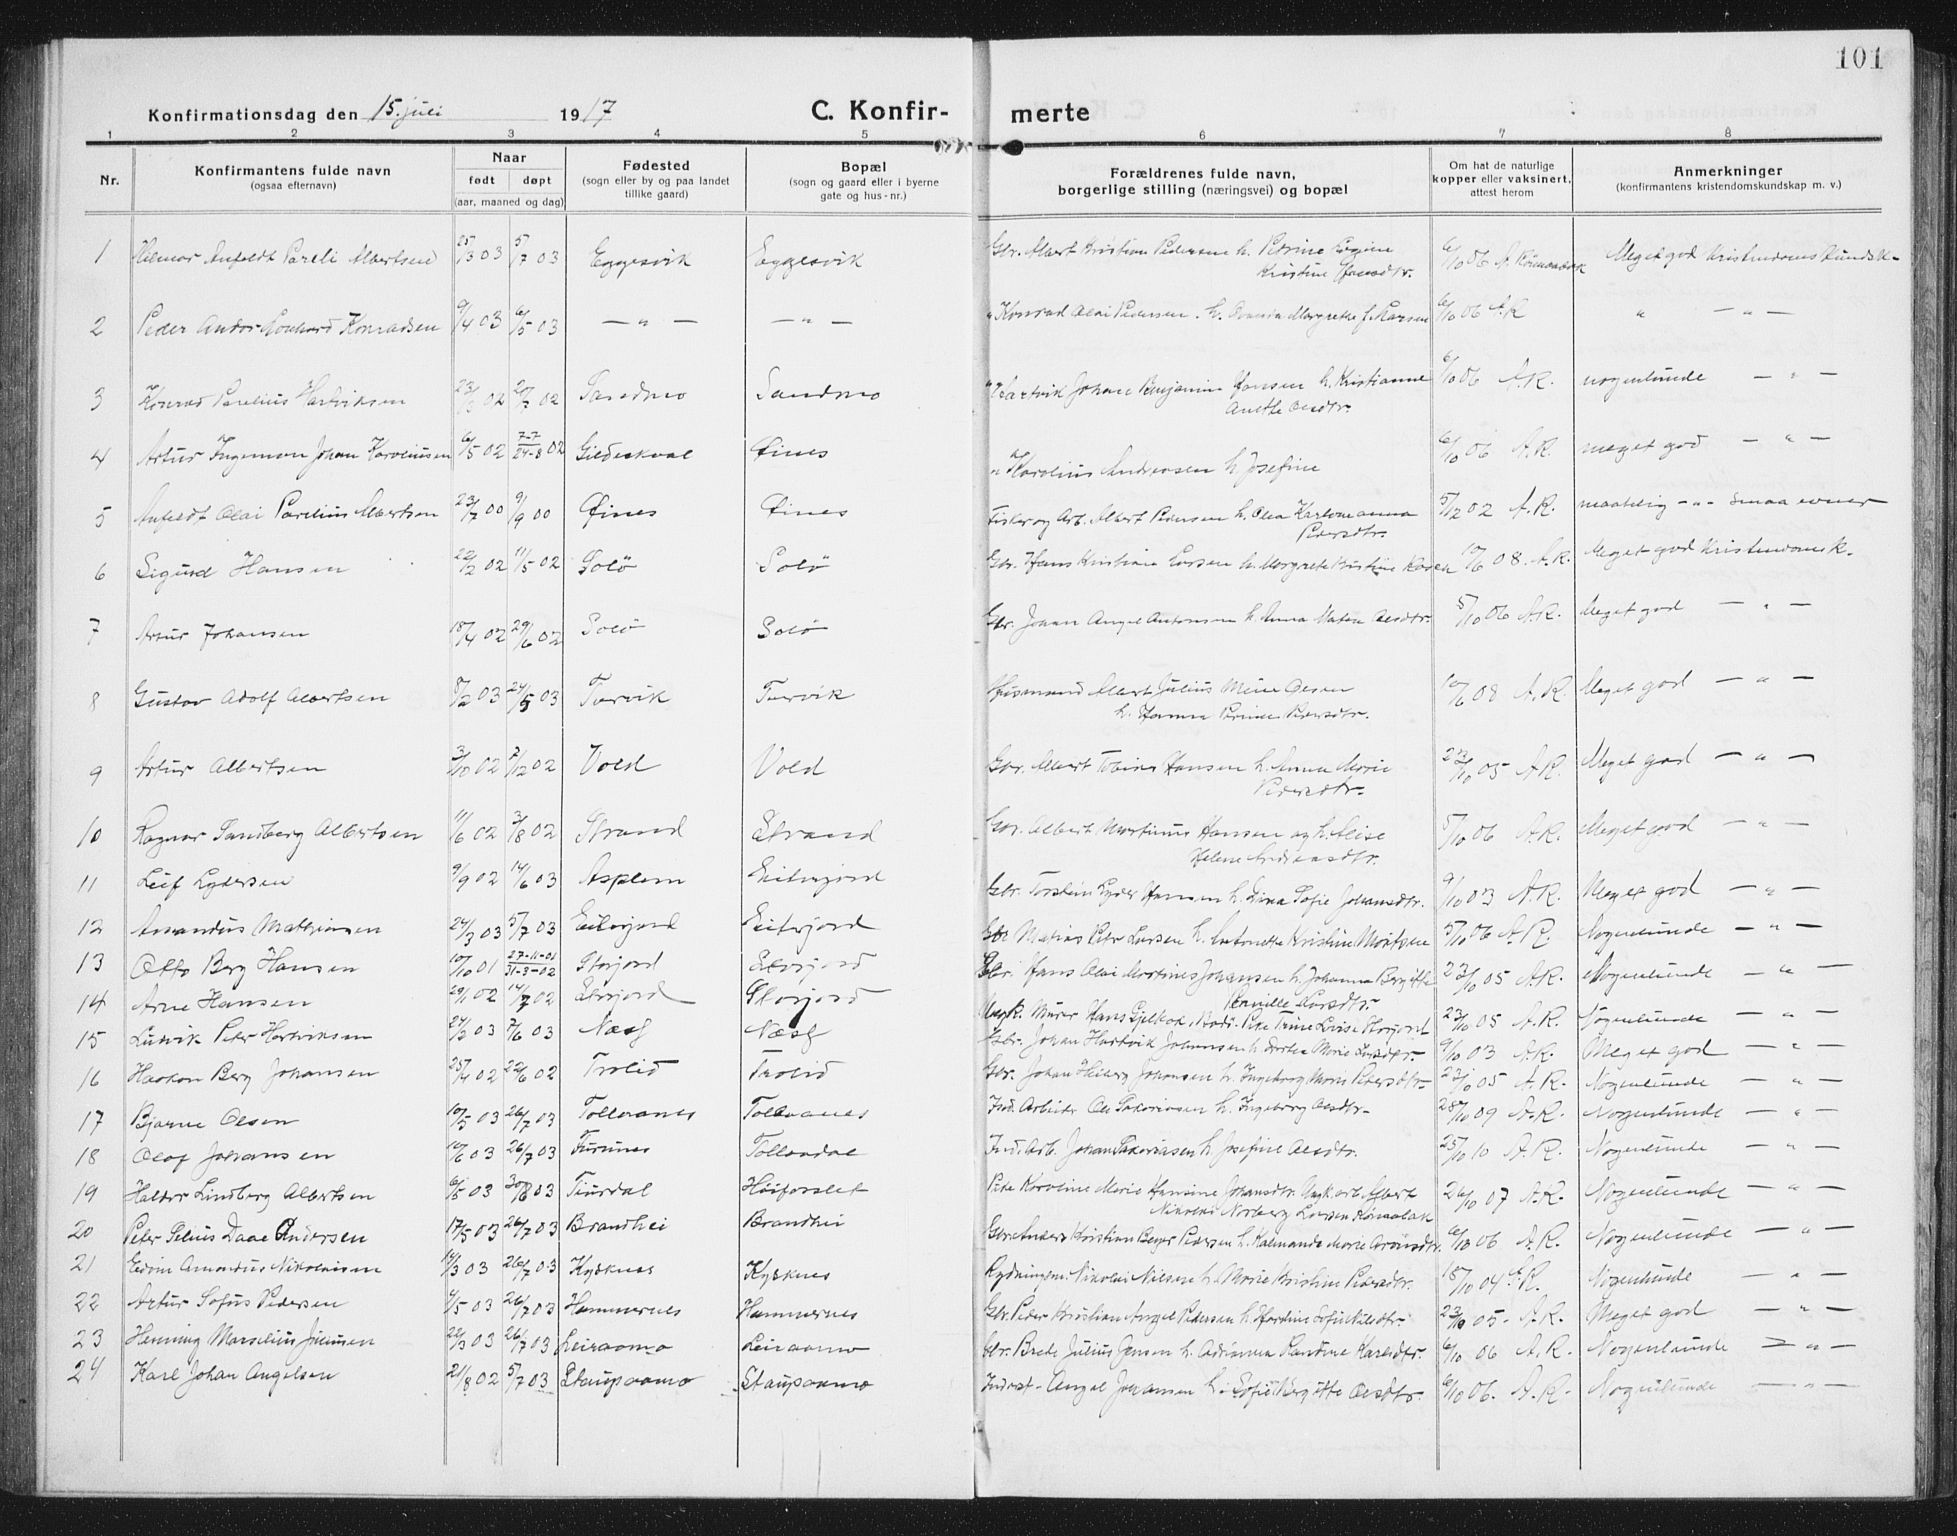 101
Konfirmationsdag den 15. juli 1917
C. Konfirmerte
1 2 3 4 5 6 7 8
Nr.
Konfirmantens fulde navn
(ogsaa efternavn)
Naar
født døpt
(aar, maaned og dag)
Fødested
(sogn eller by og paa landet
tillike gaard)
Bopæl
(sogn og gaard eller i byerne
gate og hus-nr.)
Forældrenes fulde navn,
borgerlige stilling (næringsvei) og bopæl
Om hat de naturlige
kopper eller vaksinert,
attest herom
Anmerkninger
(konfirmantens kristendomskundskap m. v.)
1 Anfeldt Pareli Albertsen 25/3 03 5/7 03 Eggesvik Eggesvik Gbr. Albert Kristian Pedersen h. Petrine
Kristine Hansdtr. 6/10 06 A. Meget god Kristendomskundsk-
2 Peder Andor Konradsen 9/4 03 6/5 03 — " — — " — " Konrad Olai Pedersen h. Margrethe f. Larsen 6/10 06 A.R " — " —
3 Konrad Parelius Hartviksen 02 20/7 02 Sandmo Sandmo " Hartvik Johan Benjamin Hansen h. Kristianne
Anette Olsdtr. 6/10 06 A.R. nogenlunde — " —
4 Artur Ingeman Johan Karoliussen 6/5 02 7-7/24-8 02 Gildeskaal Øines " Karolius Andreasen h. Josefine 6/10 06 A.R. meget god — " —
5 Anfeldt Olai Parelius Albertsen 23/7 00 9/9 00 Øines Øines Fisker og Arb. Albert Pedersen h. Olea
Pedersdtr. 5/12 02 A.R. maatelig — " — smaa evner
6 Sigurd Hansen 22/2 02 11/5 02 Solö Solö Gbr. Hans Kristian Larsen h. Margrete Kristine 10/6 08. A.R. Meget god Kristendomsk.
7 Artur Johansen 18/4 02 29/6 02 Solö Solö Gbr. Johan Angel Antonsen h. Anna Olsdtr. 5/10 06 A.R. Meget god — " —
8 Gustav Adolf Albertsen 8/2 03 24/5 03 Tervik Tervik Husmand Albert Julius Olsen
h. Hanna Pedersdtr. 10/6 08 A.R. Meget god — " —
9 Artur Albertsen 3/10 02 7/12 02 Vold Vold Gbr. Albert Tobias Hansen h. Anna Marie
Pedersdtr. 23/10 05 A.R. Meget god — " —
10 Ragnar Sandberg Albertsen 11/6 02 3/8 02 Strand Strand Gbr. Albert Martinus Hansen og h. Alise
Helene Andreasdtr. 5/10 06 A.R. Meget god — " —
11 Leif Lydersen 9/9 02 14/6 03 Asplem Eiterjord Gbr. Torstein Lyder Hansen h. Lina Sofie Johansdtr. 9/10 03 A.R. Meget god — " —
12 Amandus Mathiasen 24/3 03 5/7 03 Eiterjord Eiterjord Gbr Matias Peter Larsen h. Antonette Kristine 5/10 06 A.R. Nogenlunde — " —
13 Otto Berg Hansen 10/10 01 27-11-01/31-3-02 Storjord Storjord Gbr. Hans Olai Martines Johansen h. Johanna Bergitte
Pernille Larsdtr. 23/10 05 A.R. Nogenlunde — " —
14 Arne Hansen 29/1 02 14/7 02 Storjord Storjord Ungk. Murer Hans Bodö. Pike Trine Lovise Storjord 23/10 05 A.R. Nogenlunde — " —
15 Ludvik Peter Hartviksen 27/2 03 7/6 03 Næss Næss Gbr. Johan Hartvik Johansen h. Dortea Marie Larsdtr. 9/10 03 A.R. Meget god — " —
16 Haakon Berg Johansen 25/4 02 22/6 02 Trolid Trolid Gbr. Johan Heiberg Johansen h. Ingeborg Marie Pedersdtr. 23/10 05 A.R. Nogenlunde — " —
17 Bjarne Olsen 10/5 03 26/7 03 Tollaanes Tollaanes Ind. Arbeider Ole Sakariasen h. Ingeborg Olsdtr. 28/10 09 A.R. Nogenlunde — " —
18 Olaf Johansen 10/6 03 26/7 03 Furunes Tollaadal Ind. Arb. Johan Sakariasen h. Josefine Olsdtr. 25/10 10 A.R. Nogenlunde — " —
19 Haldor Lindberg Albertsen 6/5 03 30/8 03 Høiforslet Pike Karoline Marie Hansine Johansdtr. Ungk. arb. Albert
Nikolai Norberg Larsen 26/10 07 A.R. Nogenlunde — " —
20 Peter Selius Daae Andersen 17/5 03 26/7 03 Brandhei Brandhei Gbr Anders Kristian Beyer Pedersen h. Kalmanda Marie 6/10 06 A.R. Nogenlunde — " —
21 Edvin Amandus Nikolaisen 14/3 03 26/7 03 Kysknes Kysknes Rydningsm. Nikolai Nilsen h. Marie Kristine Pedersdtr. 18/10 04 A.R. Nogenlunde — " —
22 Artur Sofus Pedersen 4/5 03 26/7 03 Hammernes Hammernes Gbr. Peder Kristian Angel Pedersen h. Hartine Sofie Nilsdtr. 23/10 05. A.R. Meget god — " —
23 Henning Marselius Jensen 22/3 03 26/7 03 Leiraamo Leiraamo Gbr. Brede Julius Jensen h. Adrianna Pandine Karlsdtr. 6/10 06 A.R. Nogenlunde — " —
24 Karl Johan Angelsen 21/8 02 5/7 03 Staupaamo Staupaamo Inderst. Angel Johansen h. Sofie Bergitte Olsdtr. 6/10 06. A.R. Nogenlunde — " —